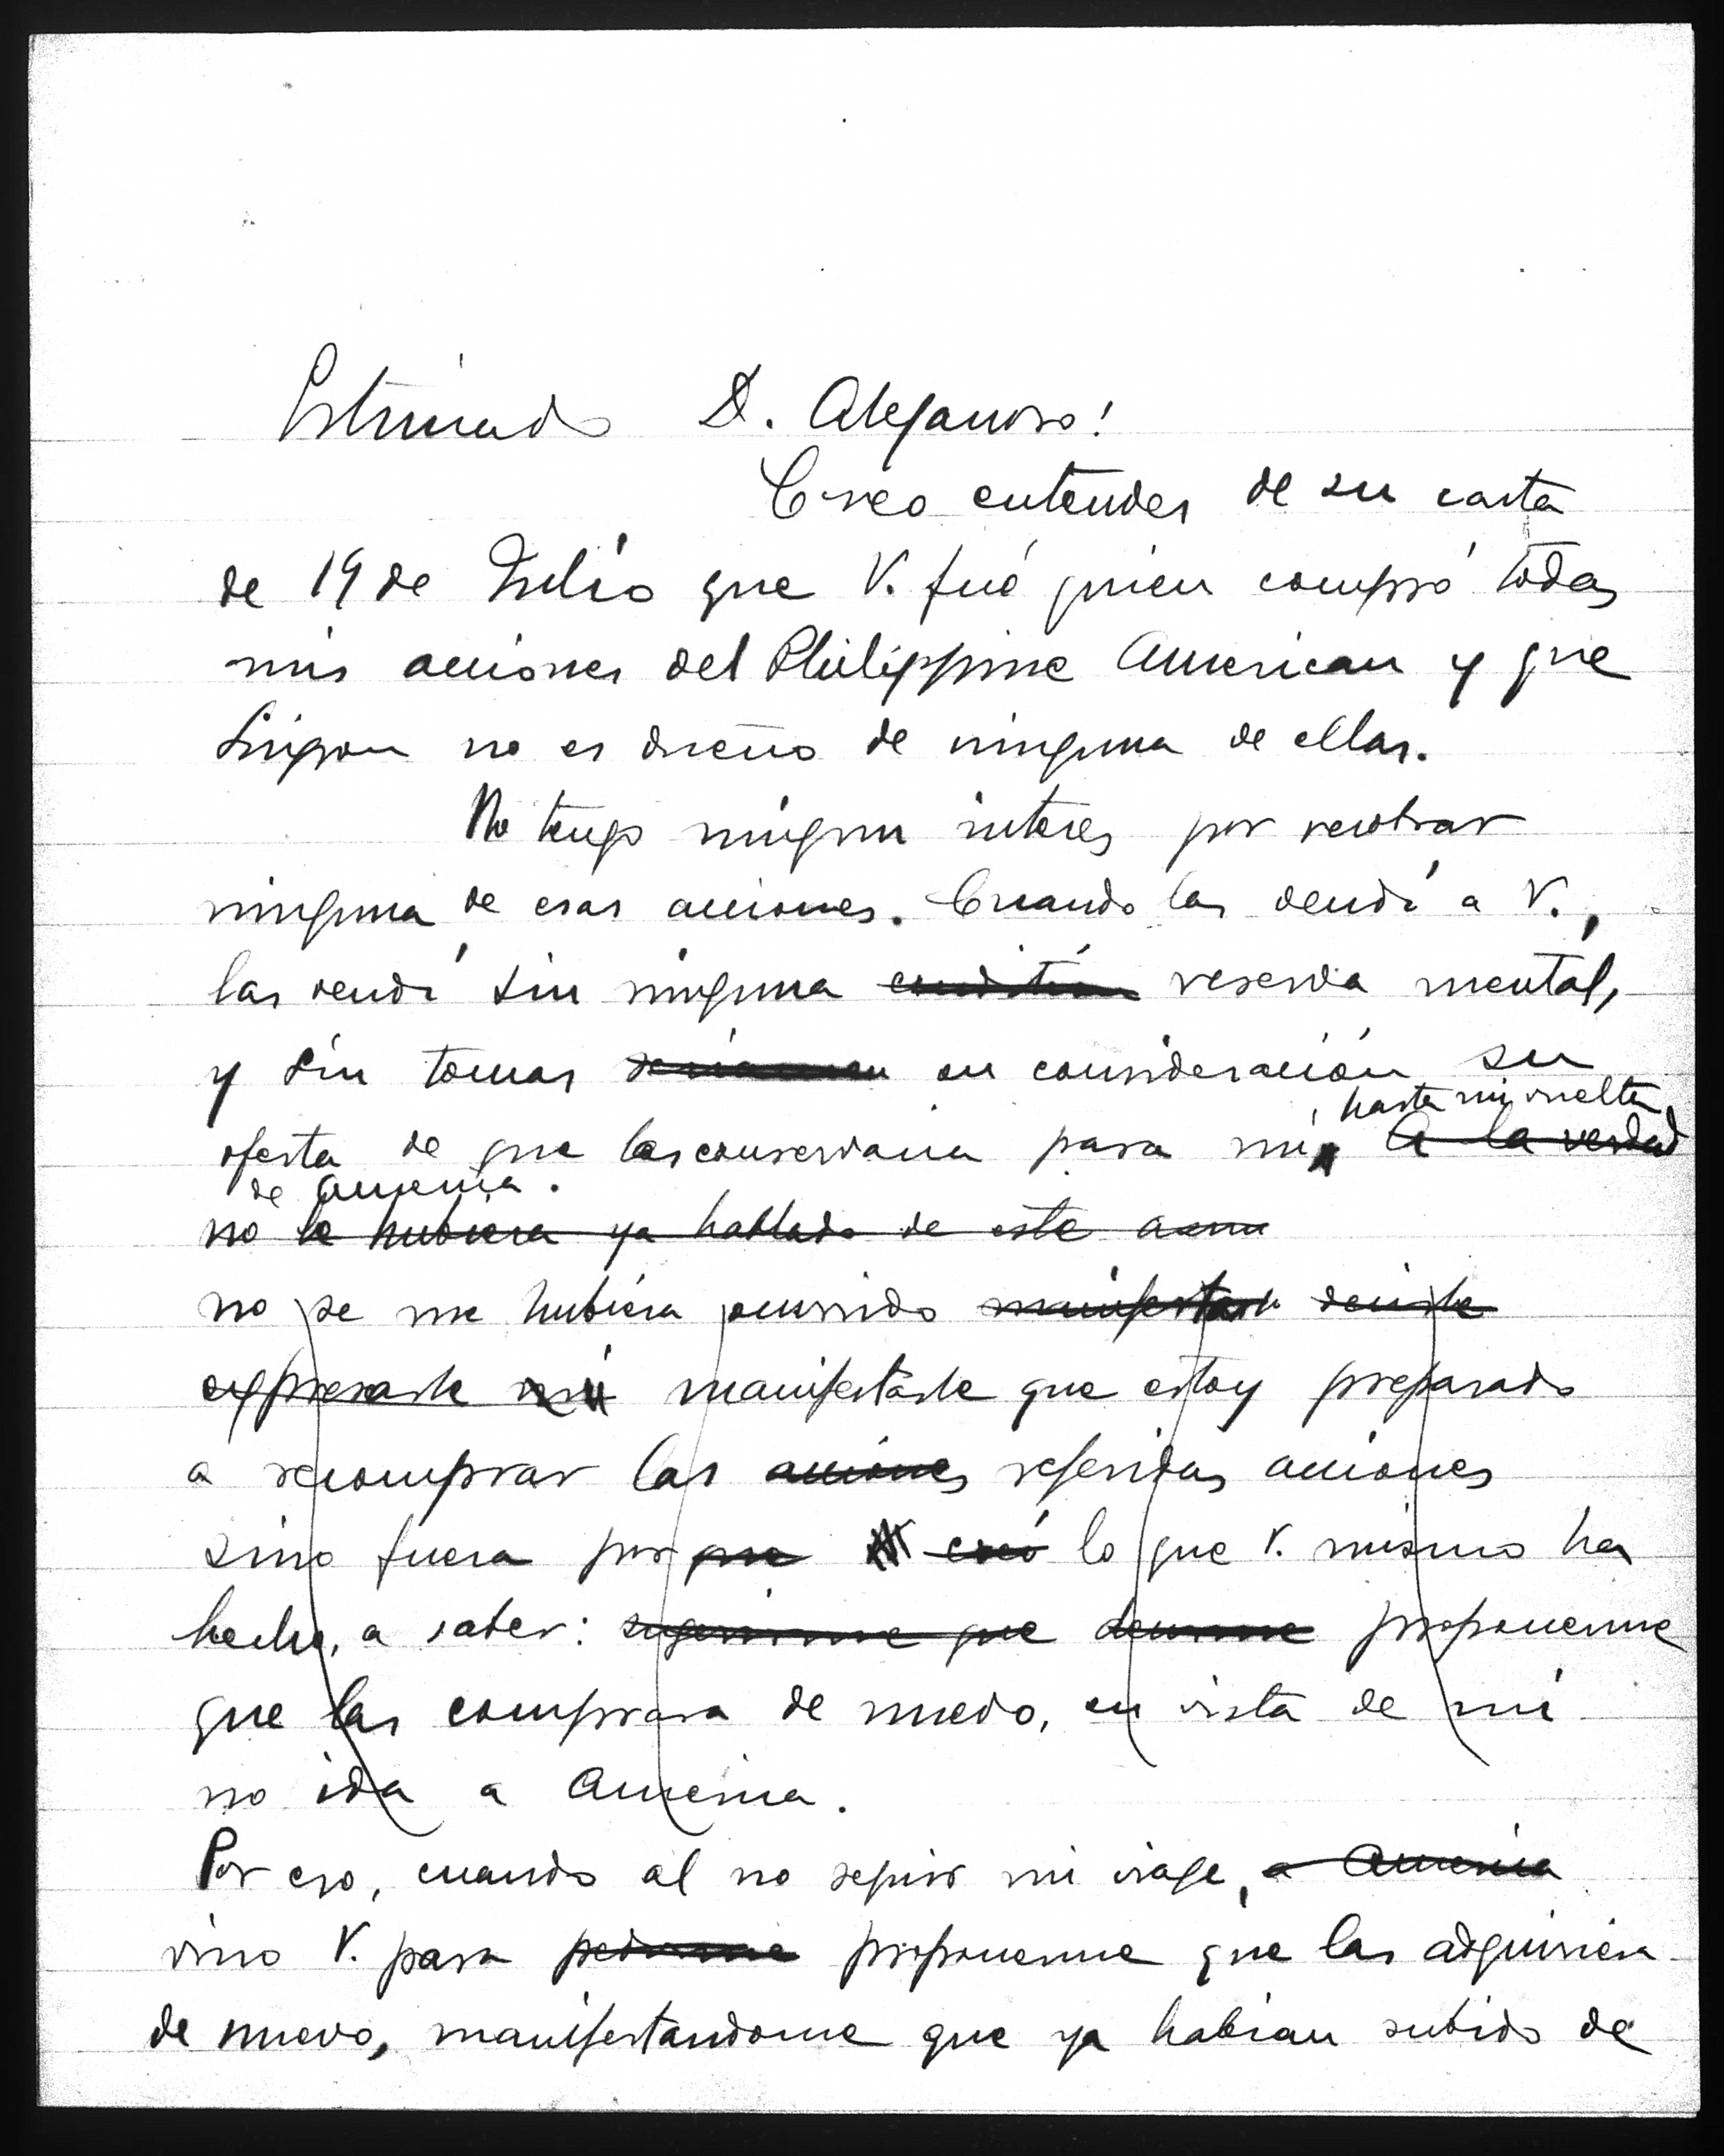 Estimado D. Alejandro!
Creo entender de su carta
de 19 de Julio que V. fué quien compró todas
mis acciones del Philippine American y que
Singson no es dueño de ninguna de ellas.
No tengo ningun interes por recobrar
ninguna de esas acciones. Cuando las vendí a V.,
las vendí sin ninguna condición reserva mental,
y sin tomar en consideración su
, hasta mi vuelta
oferta de que las conservaria para mi A la verdad
de America.
no le hubiera ya hablado de este
no se me hubiera ocurrido manifestarle decirle
expresarle mi manifestarle que estoy preparado
a recomprar las acciones referidas acciones
sino fuera por que creó lo que V. mismo ha
hecho, a saber: sugerirme que proponerme
que las comprara de nuevo, en vista de mi
no ida a America.
Por eso, cuando al no seguir mi viaje, a America
vino V. para pedirme proponerme que las adquiriera
de nuevo, manifestandome que ya habian subido de